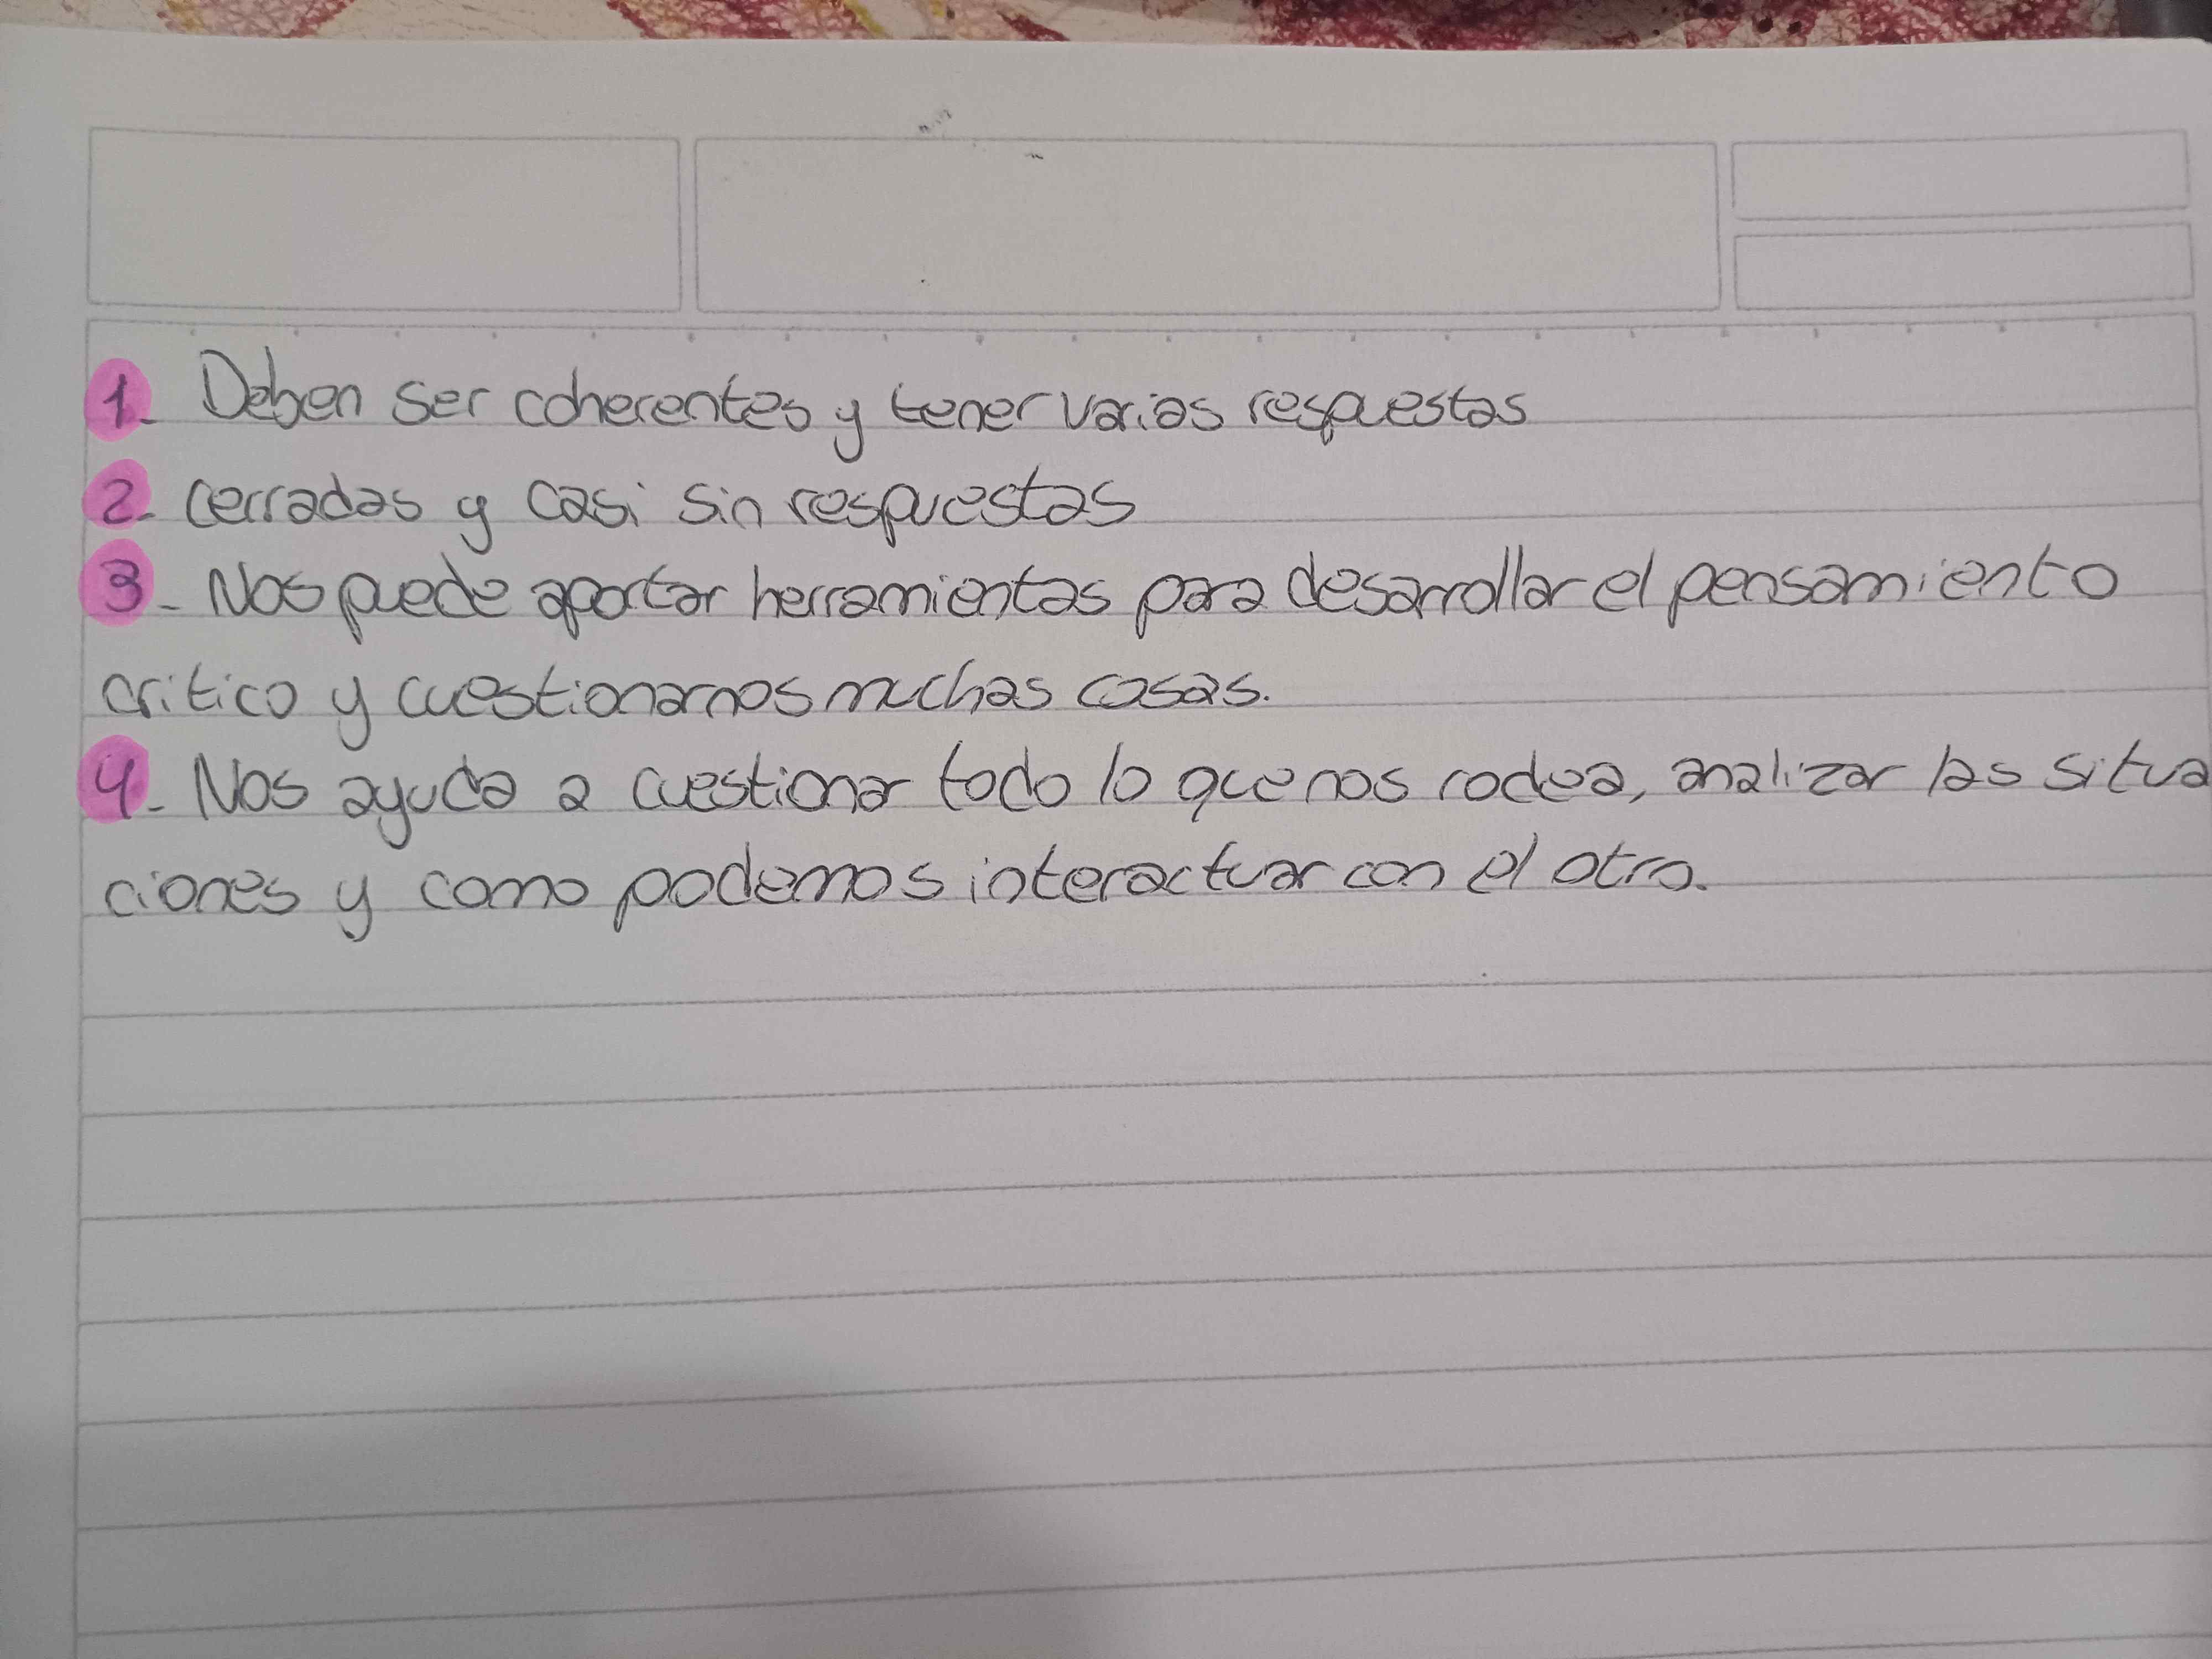 1. Deben ser coherentes y tener varias respuestas
2. cerradas y casi sin respuestas
3- Nos puede aportar herramientas para desarrollar el pensamiento
critico y cuestionarnos muchas cosas.
4- Nos ayuda a cuestionar todo lo que nos rodea, analizar las situa
ciones y como podemos interactuar con el otro.